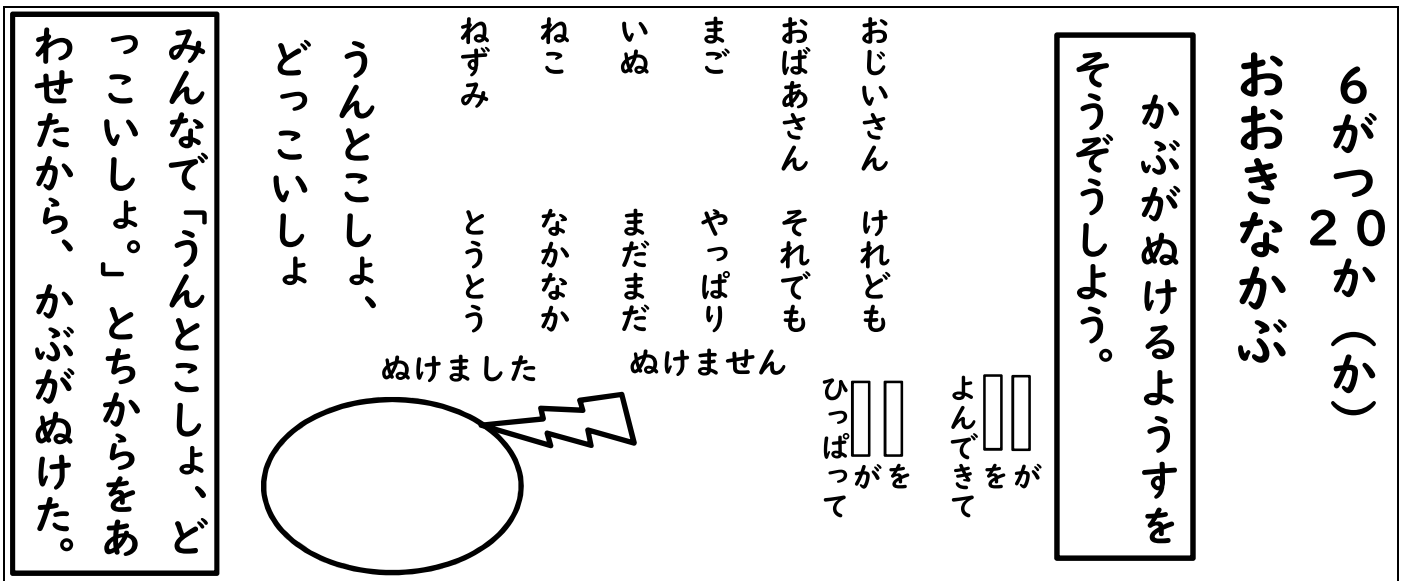 6がつ20か（か）
おおきなかぶ
かぶがぬけるようすを
そうぞうしよう。
が
を
よんできて
を
が
ひっぱって
おじいさん　けれども
おばあさん　それでも
まご　やっぱり
いぬ　まだまだ
ねこ　なかなか
ねずみ　とうとう
ぬけません
ぬけました
うんとこしょ、
どっこいしょ
みんなで「うんとこしょ、ど
っこいしょ。」とちからをあ
わせたから、かぶがぬけた。